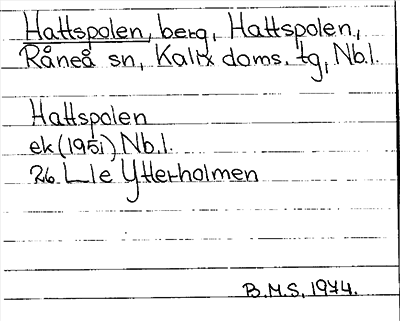 Hattspolen, berg, Hattspolen,
Råneå sn, Kalix doms. tg, Nb.l.
Hattspolen
ek (1951) Nb.l.
26. L:le Ytterholmen
B.M.S, 1974.